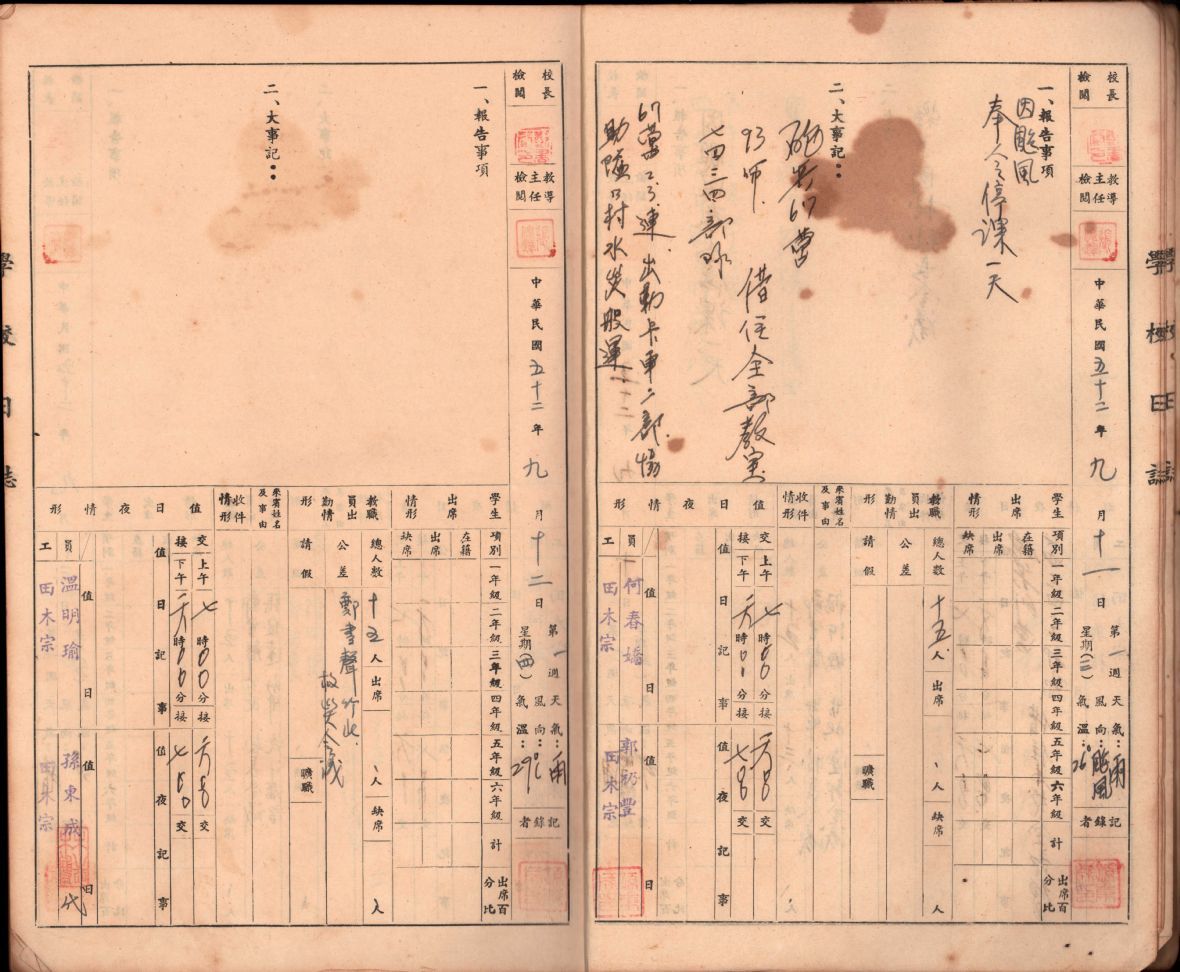 學校日誌
校長檢閱
教導主任檢閱
中華民國五十二年九月十一日
第一週 星期(三)
天氣:雨
風向:颱風
氣溫:26°
記錄者
一、報告事項
因颱風
奉令停課一天
二、大事記:
砲兵67營
93師
七四三四部隊
借住全部教室
67營 連 出動卡車二部 協
助 村水災搬運
學生出席情形
項別 一年級 二年級 三年級 四年級 五年級 六年級 計 出席百分比
在籍
出席
缺席
教職員出勤情形
總人數 十五人 出席 人 缺席 人
公差
請假
曠職
來賓姓名及事由
收件情形
值日夜情形
交 上午 七時00分接
接 下午 六時00分接
值日記事
值夜記事
交
交
員 值日 何春嬌
值日 郭礽豐
工 田木宗
田木宗
學校日誌
校長檢閱
教導主任檢閱
中華民國五十二年九月十二日
第一週 星期(四)
天氣:雨
風向:
氣溫:29℃
記錄者
一、報告事項
二、大事記:
學生出席情形
項別 一年級 二年級 三年級 四年級 五年級 六年級 計 出席百分比
在籍
出席
缺席
教職員出勤情形
總人數 十五人 出席 人 缺席 人
公差 鄭書聲 竹北
救災會議
請假
曠職
來賓姓名及事由
收件情形
值日夜情形
交 上午 七時00分接
接 下午 六時00分接
值日記事
值夜記事
交
交
員 值日 溫明瑜
值日 孫東成 代
工 田木宗
田木宗